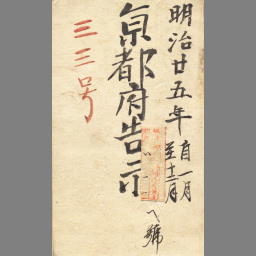 明治廿五年
自一月
至十二月
京都府告示
三三号